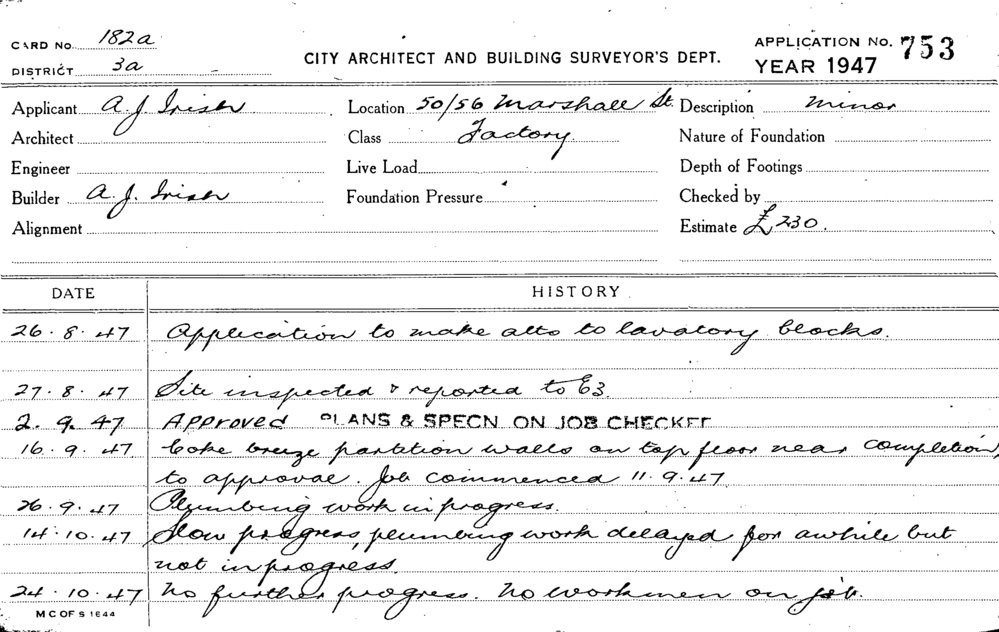 CARD No. 182a
DISTRICT 3a
CITY ARCHITECT AND BUILDING SURVEYOR'S DEPT.
APPLICATION No. 753
YEAR 1947
Applicant A. J. Irish Location 50/56 Marshall St. Description minor
Architect Class Factory. Nature of Foundation
Engineer Live Load Depth of Footings
Builder A. J. Irish Foundation Pressure Checked by
Alignment Estimate £230.
DATE HISTORY
26.8.47 Application to make alts to lavatory blocks.
27.8.47 Site inspected & reported to E3.
2.9.47 Approved PLANS & SPECN ON JOB CHECKET
16.9.47 Coke breeze partition walls on top floor near completion,
to approval. Job commenced 11.9.47
26.9.47 Plumbing work in progress.
14.10.47 Slow progress, plumbing work delayed for awhile but
not in progress.
24.10.47 No further progress. No workmen on job.
M C OF S 1644